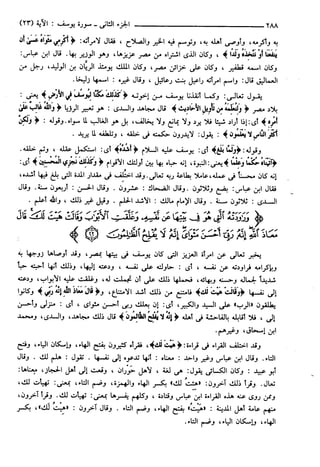 ٢٨٨ الجزء الثاني - سورة يوسف : الآية (٢٣)
به وأكرمه، وأوصى أهله به، وتوسم فيه الخير والصلاح ، فقال لامرأته: ﴿أكرمي مثواه عسى أن
ينفعنا أو نتخذه ولدا﴾ ، وكان الذي اشتراه من مصر عزيزها، وهو الوزير بها. قال ابن عباس:
وكان اسمه قطفير ، وكان على خزائن مصر، وكان الملك يومئذ الريان بن الوليد، رجل من
العماليق قال: واسم امرأته راعيل بنت رعائيل ، وقال غيره : اسمها زليخا.
يقول تعالى: وكما أنقذنا يوسف من إخوته ﴿كذلك مكنا ليوسف في الأرض﴾ يعني :
بلاد مصر ﴿ولنعلمه من تأويل الأحاديث﴾ قال مجاهد والسدي : هو تعبير الرؤيا ﴿والله غالب على
أمره﴾ أي: إذا أراد شيئا فلا يرد ولا يمانع ولا يخالف، بل هو الغالب لما سواه. وقوله : ﴿ولكن
أكثر الناس لا يعلمون﴾ : يقول: لا يدرون حكمته في خلقه ، وتلطفه لما يريد .
وقوله: ﴿ولما بلغ﴾ أي: يوسف عليه السلام ﴿أشده﴾ أي: استكمل عقله ، وتم خلقه.
﴿آتيناه حكما وعلما﴾ يعني: النبوة، إنه حباه بها بين أولئك الأقوام ﴿وكذلك نجزي المحسنين﴾ أي:
إنه كان محسنا في عمله، عاملا بطاعة ربه تعالى. وقد اختلف في مقدار المدة التي بلغ فيها أشده،
فقال ابن عباس: بضع وثلاثون . وقال الضحاك : عشرون . وقال الحسن : أربعون سنة. وقال
السدي : ثلاثون سنة . وقال الإمام مالك : الأشد الحلم . وقيل غير ذلك ، والله أعلم .
﴿وراودته التي هو في بيتها عن نفسه وغلقت الأبواب وقالت هيت لك قال
معاذ الله إنه ربي أحسن مثواي إنه لا يفلح الظالمون ﴿٢٣﴾﴾
يخبر تعالى عن امرأة العزيز التي كان يوسف في بيتها بمصر، وقد أوصاها زوجها به
وبإكرامه فراودته عن نفسه ، أي : حاولته على نفسه ، ودعته إليها، وذلك أنها أحبته حبا
شديدا لجماله وحسنه وبهائه، فحملها ذلك على أن تجملت له، وغلقت عليه الأبواب، ودعته
إلى نفسها ﴿وقالت هيت لك﴾ فامتنع من ذلك أشد الامتناع، و﴿قال معاذ الله إنه ربي﴾ وكانوا
يطلقون «الرب» على السيد والكبير، أي: إن بعلك ربي أحسن مثواي ، أي : منزلي وأحسن
إلي ، فلا أقابله بالفاحشة في أهله ﴿إنه لا يفلح الظالمون﴾ قال ذلك مجاهد، والسدي، ومحمد
ابن إسحاق، وغيرهم.
وقد اختلف القراء في قراءة: ﴿هيت لك﴾، فقرأه كثيرون بفتح الهاء، وإسكان الياء، وفتح
التاء. وقال ابن عباس وغير واحد : معناه : أنها تدعوه إلى نفسها . تقول : هلم لك . وقال
أبو عبيد : وكان الكسائي يقول: هي لغة ، لأهل حوران ، وقعت إلى أهل الحجاز، معناها:
تعال. وقرأ ذلك آخرون: «هئت لك» بكسر الهاء والهمزة، وضم التاء، بمعنى: تهيأت لك،
وممن روى عنه هذه القراءة ابن عباس وقتادة ، وكلهم يفسرها بمعنى: تهيأت لك. وقرأ آخرون،
منهم عامة أهل المدينة : «هيت» بفتح الهاء، وضم التاء . وقال آخرون : «هيت لك»، بكسر
الهاء، وإسكان الياء، وضم التاء.